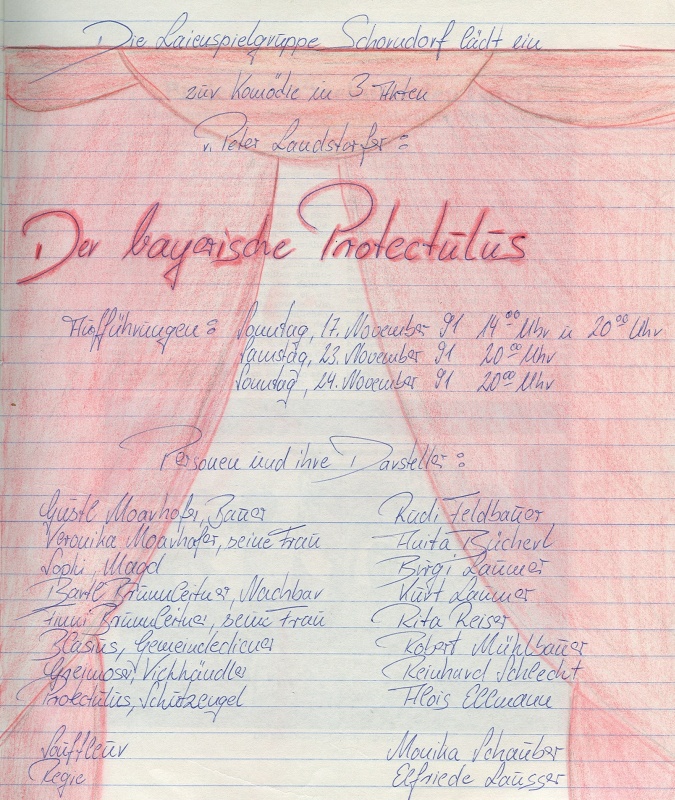 Die Laienspielgruppe Schorndorf lädt ein
zur Komödie in 3 Akten
v. Peter Landstorfer:
Der bayerische Protectulus
Aufführungen: Sonntag, 17. November 91 14⁰⁰ Uhr u 20⁰⁰ Uhr
Samstag, 23. November 91 20⁰⁰ Uhr
Sonntag, 24. November 91 20⁰⁰ Uhr
Personen und ihre Darsteller:
Gustl Moarhofer, Bauer Rudi Feldbauer
Veronika Moarhofer, seine Frau Anita Bücherl
Lophi, Magd Birgi Laumer
Bartl Brunnleitner, Nachbar Kurt Laumer
Anni Brunnleitner, seine Frau Rita Reiser
Blasius, Gemeindediener Robert Mühlbauer
Gneimoser, Viehhändler Reinhard Schlecht
Protectulus, Schutzengel Alois Ellmann
Souffleur Monika Schauber
Regie Elfriede Lausser